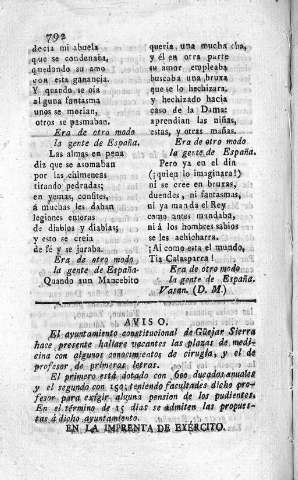 792
decia mi abuela
que se condenaba,
quedando su amo
con esta ganancia.
Y quando se oia
alguna fantasma
unos se morian,
otros se pasmaban.
Era de otro modo
la gente de España.
Las almas en pena
dis que se asomaban
por las chimeneas
tirando pedradas;
en yemas, confites,
á muchas les daban
legiones enteras
de diablos y diablas;
y esto se creia
de fe y se juraba.
Era de otro modo
la gente de España.
Quando aun Mancebito
queria, una muchacha,
y él en otra parte
su amor empleaba
buscaba una bruxa
que se lo hechizara,
y hechizado hacia
caso de la Dama:
aprendian las niñas,
estas, y otras mañas.
Era de otro modo
la gente de España.
Pero ya en el dia
(¡quien lo imaginara!)
ni se cree en bruxas,
duendes, ni fantasmas,
ni ya manda el Rey
como antes mandaba,
ni á los hombres sabios
se les achicharra.
¡Ai como esta el mundo,
Tia Calasparra!
Era de otro modo
la gente de España.
Vasan. (D. M.)
AVISO.
El ayuntamiento constitucional de Güejar Sierra
hace presente hallarse vacantes las plazas de medi-
cina con algunos conocimientos de cirugia, y el de
profesor de primeras letras.
El primero está dotado con 600 ducados anuales
y el segundo con 150; teniendo facultades dicho pro-
fesor para exigir alguna pension de los pudientes.
En el término de 15 dias se admiten las propues-
tas á dicho ayuntamiento.
EN LA IMPRENTA DE EXÉRCITO.